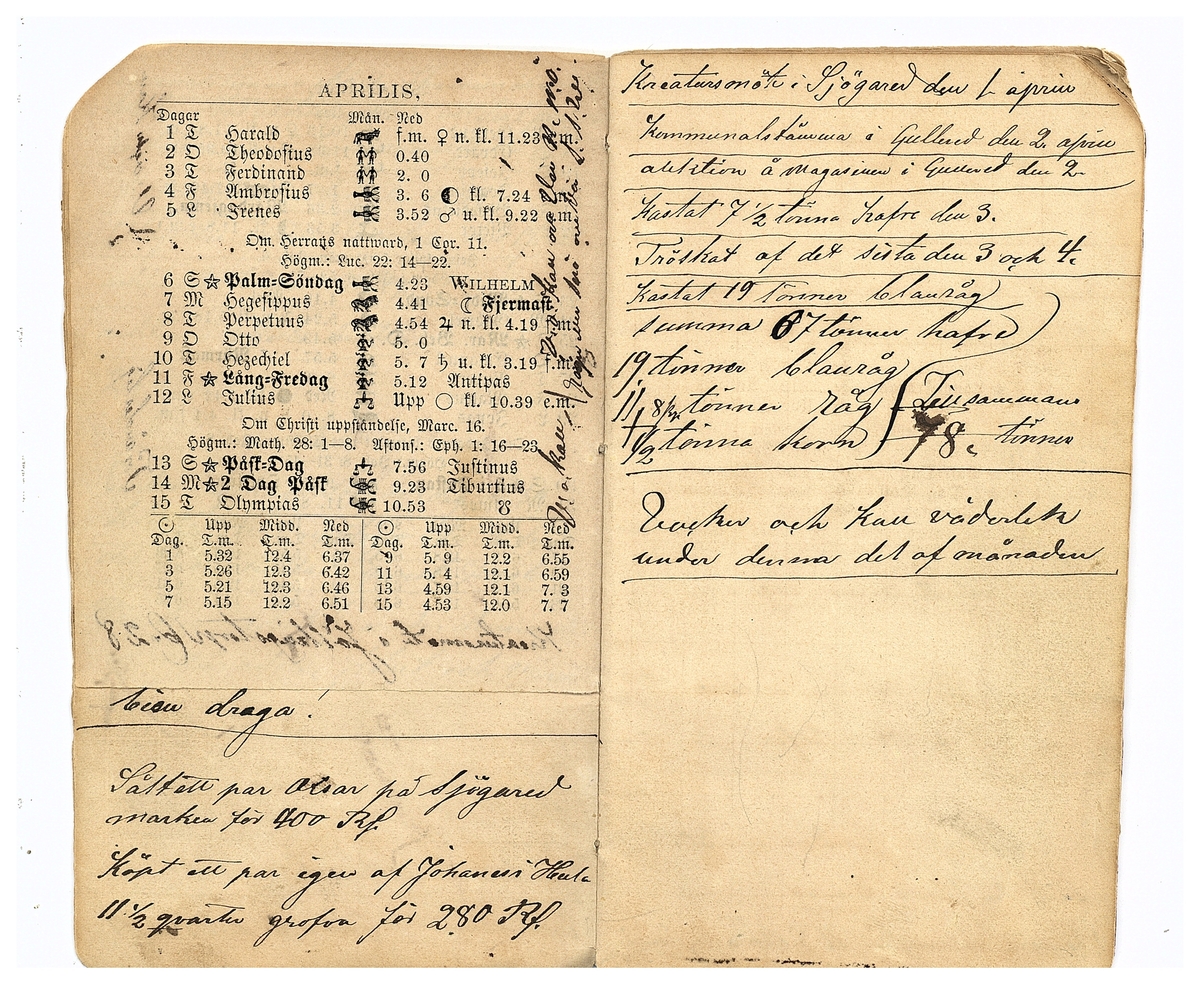 APRILIS.
Dagar Mån. Ned
1 T Harald f.m. ♀ n. kl. 11.23 e.m.
2 O Theodosius 0.40
3 T Ferdinand 2. 0
4 F Ambrosius 3. 6 kl. 7.24
5 L Irenes 3.52 ♂ u. kl. 9.22 e.m.
Om Herrans nattward, 1 Cor. 11.
Högm.: Luc. 22: 14—22.
6 S Palm-Söndag 4.23 WILHELM
7 M Hegesippus 4.41 ☾ Fjermast
8 T Perpetuus 4.54 ♃ n. kl. 4.19 f.m.
9 O Otto 5. 0
10 T Hezechiel 5. 7 ♄ u. kl. 3.19 f.m.
11 F Lång-Fredag 5.12 Antipas
12 L Julius Upp ○ kl. 10.39 e.m.
Om Christi uppståndelse, Marc. 16.
Högm.: Math. 28: 1—8. Aftons.: Eph. 1: 16—23.
13 S Påsk-Dag 7.56 Justinus
14 M 2 Dag Påsk 9.23 Tiburtius
15 T Olympias 10.53 ☊
☉ Upp Midd. Ned ☉ Upp Midd. Ned
Dag. T.m. T.m. T.m. Dag. T.m. T.m. T.m.
1 5.32 12.4 6.37 9 5. 9 12.2 6.55
3 5.26 12.3 6.42 11 5. 4 12.1 6.59
5 5.21 12.3 6.46 13 4.59 12.1 7. 3
7 5.15 12.2 6.51 15 4.53 12.0 7. 7
draga!
Sålt ett par Oxar på Sjögared
marken för 400 Rf.
Köpt ett par igen af Johannes
11 1/2 qvarter grofva för 280 Rf.
Kreatursmöte i Sjögared den 1 april
Kommunalstämma i Gullered den 2. april
auktion å Magasinen i Gullered den 2.
Kastat 7 1/2 tönna hafre den 3.
Tröskat af det sista den 3 och 4.
Kastat 19 tönner blauråg
summa 67 tönner hafre
19 tönner blauråg
11 tönner råg Tillsammans
1/2 tönna korn 78. tönner
Vacker och kall väderlek
under denna del af månaden